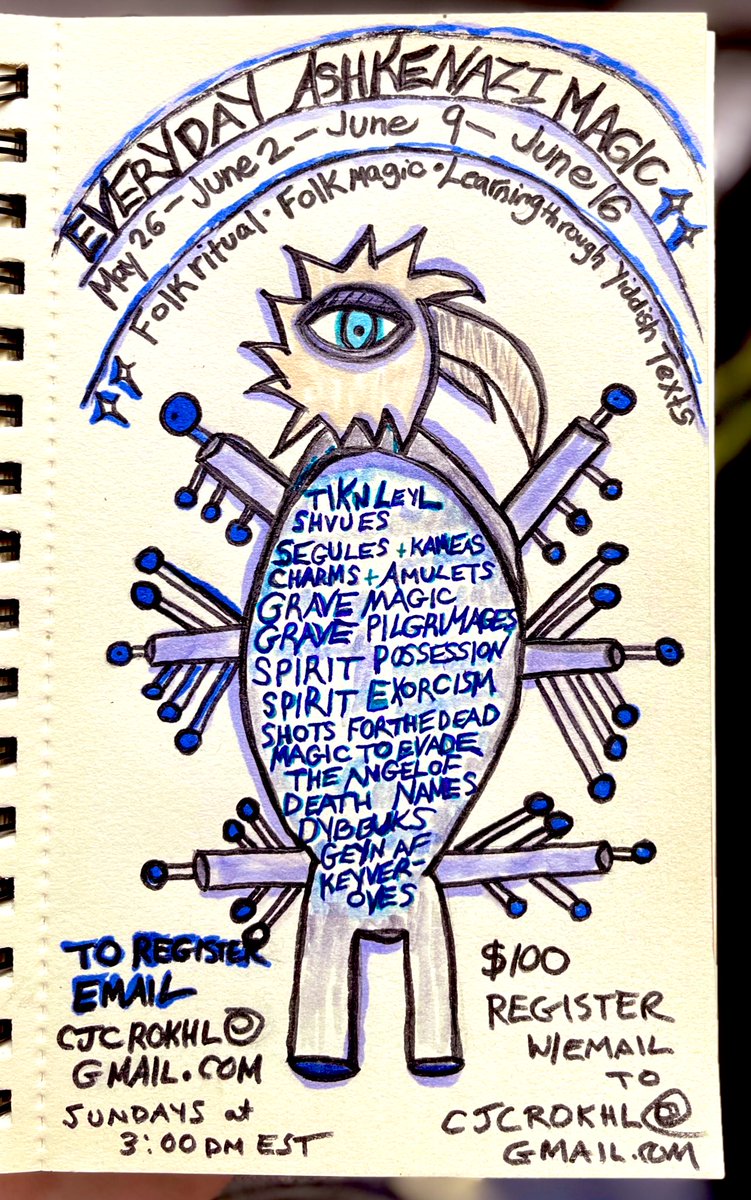 EVERYDAY ASHKENAZI MAGIC
May 26 - June 2 - June 9 - June 16
Folk ritual · Folk Magic · Learning through Yiddish Texts
TIKN LEYL
SHVUES
SEGULES + KAMEAS
CHARMS + AMULETS
GRAVE MAGIC
GRAVE PILGRIMAGES
SPIRIT POSSESSION
SPIRIT EXORCISM
SHOTS FOR THE DEAD
MAGIC TO EVADE
THE ANGEL OF
DEATH NAMES
DYBBUKS
GEYN AF
KEYVER-
OVES
TO REGISTER
EMAIL
CJCROKHL@
GMAIL.COM
SUNDAYS at
3:00 PM EST
$100
REGISTER
W/EMAIL
TO
CJCROKHL@
GMAIL.COM